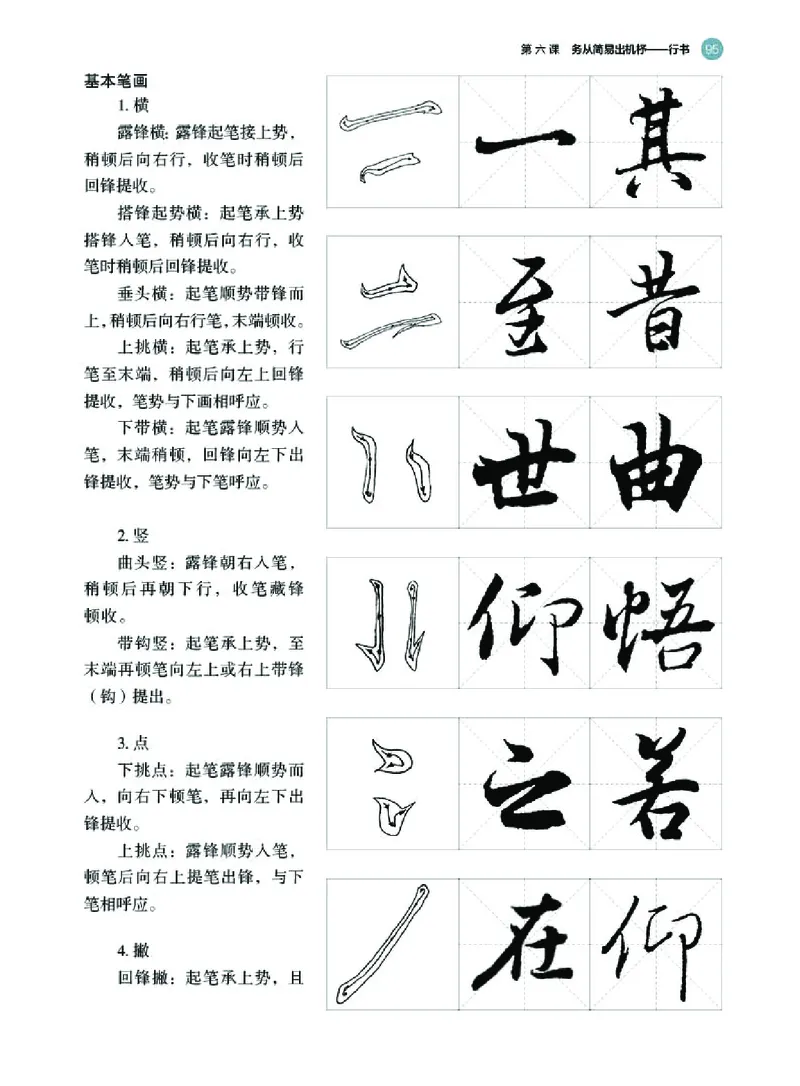 第六课 务从简易出机杼——行书 95
基本笔画
1. 横
露锋横：露锋起笔接上势，
稍顿后向右行，收笔时稍顿后
回锋提收。
搭锋起势横：起笔承上势
搭锋入笔，稍顿后向右行，收
笔时稍顿后回锋提收。
垂头横：起笔顺势带锋而
上，稍顿后向右行笔，末端顿收。
上挑横：起笔承上势，行
笔至末端，稍顿后向左上回锋
提收，笔势与下画相呼应。
下带横：起笔露锋顺势入
笔，末端稍顿，回锋向左下出
锋提收，笔势与下笔呼应。
2. 竖
曲头竖：露锋朝右入笔，
稍顿后再朝下行，收笔藏锋
顿收。
带钩竖：起笔承上势，至
末端再顿笔向左上或右上带锋
（钩）提出。
3. 点
下挑点：起笔露锋顺势而
入，向右下顿笔，再向左下出
锋提收。
上挑点：露锋顺势入笔，
顿笔后向右上提笔出锋，与下
笔相呼应。
4. 撇
回锋撇：起笔承上势，且
一 其
至 昔
世 曲
仰 悟
之 若
在 仰